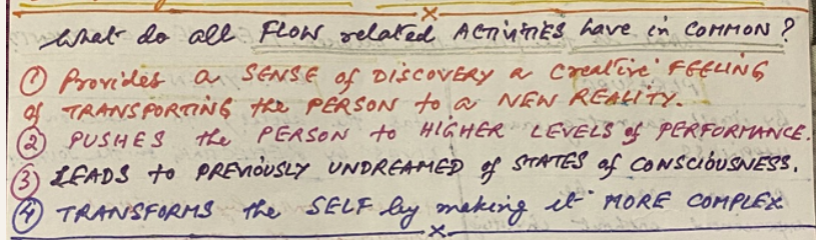 What do all FLOW related ACTIVITIES have in COMMON?
① Provides a SENSE of DISCOVERY a creative FEELING
of TRANSPORTING the PERSON to a NEW REALITY.
② PUSHES the PERSON to HIGHER LEVELS of PERFORMANCE.
③ LEADS to PREVIOUSLY UNDREAMED of STATES of CONSCIOUSNESS.
④ TRANSFORMS the SELF by making it MORE COMPLEX